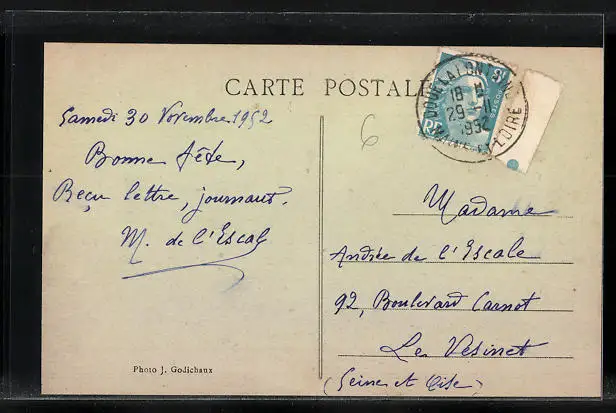 CARTE POSTALE
Samedi 30 Novembre 1952
Bonne fête,
Reçu lettre, journaux.
M. de l'Escale
Photo J. Godichaux
6
DOUÉ LA FONTAINE
18 H
29-11
1952
MAINE-ET-LOIRE
RF
Madame
Andrée de l'Escale
92, Boulevard Carnot
Le Vésinet
(Seine et Oise)